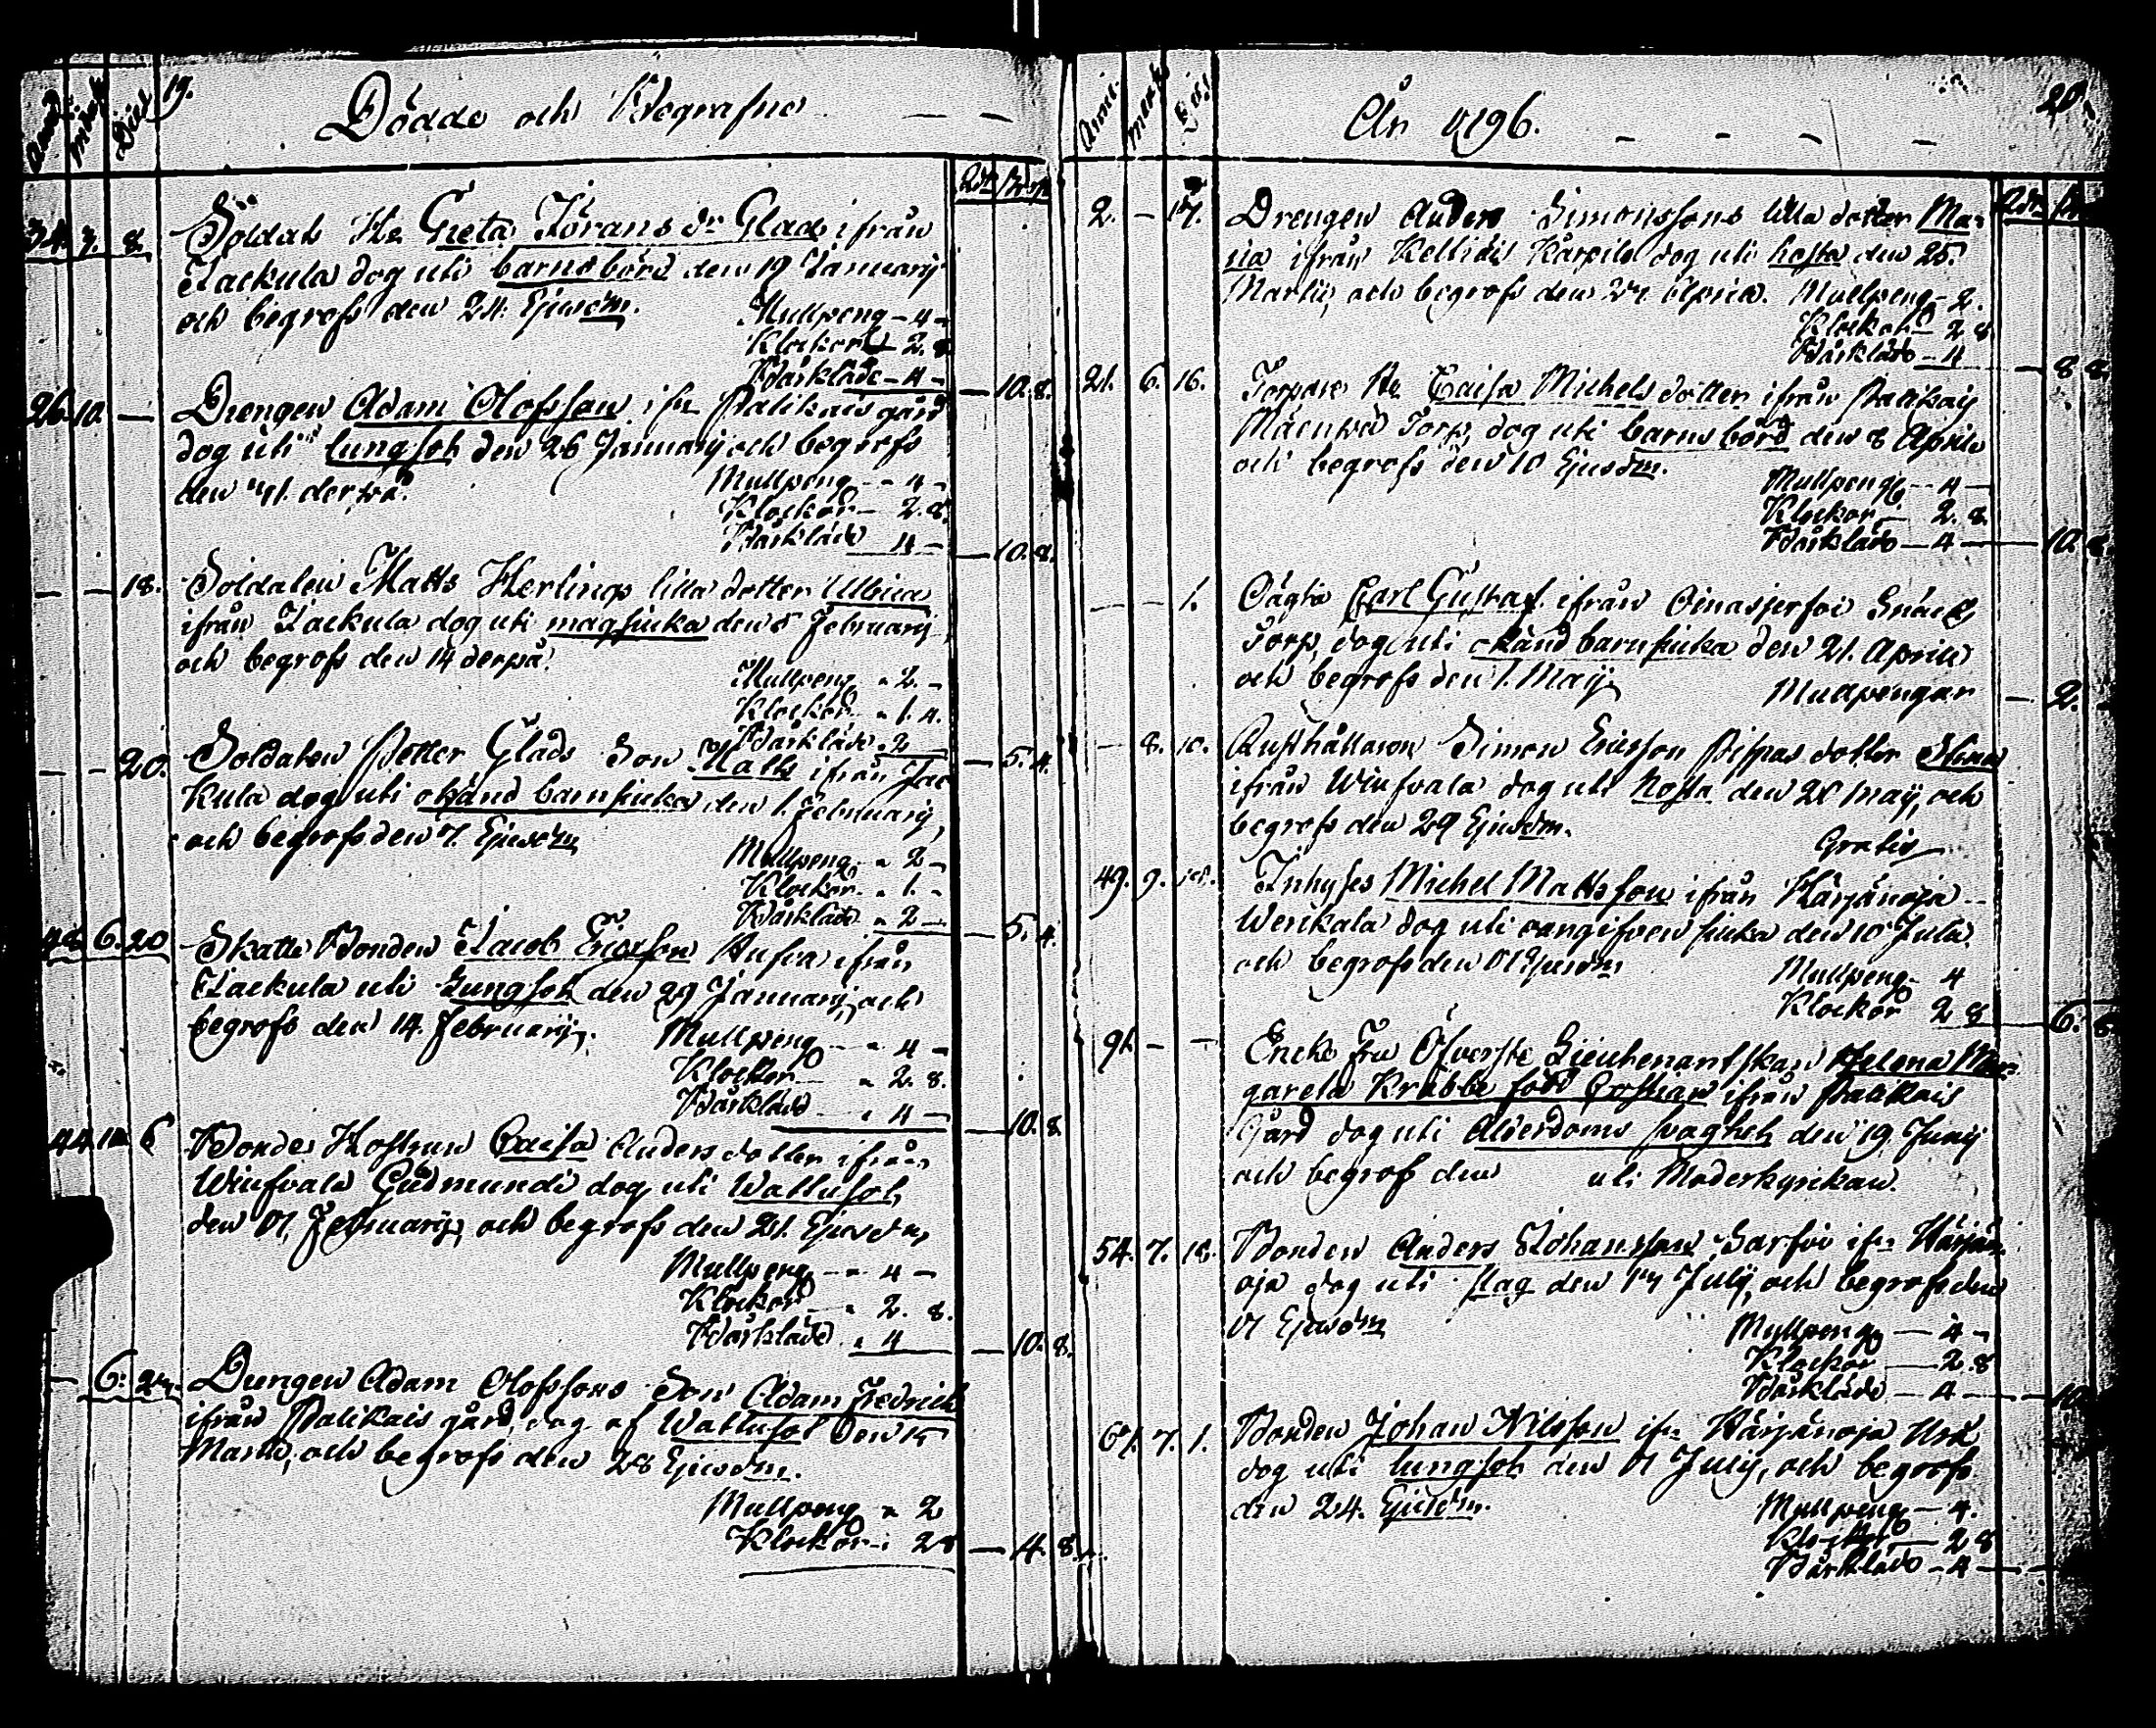 19.
Dödde och Begrafne
Rdr
34. 3. 8. Soldats H:u Greta Jörans dr Glads ifrån
Jackula dog uti barnsbörd den 19 Januarij
och begrofs den 24. Ejusdm.
Mullpeng - 4 -
Klockor - 2. 8
Bårkläde - 4 - - 10. 8.
26. 10. - Drengen Adam Olofsson ifrn Palikais gård
dog uti lungsot den 26 Januarij och begrofs
den 7. derpå.
Mullpeng - 4 -
Klockor - 2. 8.
Bårkläde 4 - - 10. 8.
- - 18. Soldaten Matts Herlings lilla dotter Ullrica
ifrån Jackula dog uti magsiuka den 8 Februarij
och begrofs den 14 derpå.
Mullpeng " 2. -
Klockor " 1. 4.
Bårkläde " 2 - - 5. 4.
- - 20. Soldaten Petter Glads Son Matts ifrån Jac
kula dog uti okänd barnsiuka den 1. Februarij,
och begrofs den 7. Ejusdm
Mullpeng " 2 -
Klockor " 1. -
Bårkläde " 2 - - 5. 4.
6. 20 Skatte Bonden Jacob Ericsson Anfva ifrån
Jackula uti Lungsot den 29 Januarij, och
begrofs den 14. Februarij.
Mullpeng " 4 -
Klockor " 2. 8.
Bårkläde " 4 - - 10. 8.
44. 10 6 Bonde Hustrun Caisa Andersdotter ifrån
Winfvala Gudmundi dog uti Wattusot,
den 7. Februarij, och begrofs den 21. Ejusdm
Mullpeng " 4 -
Klockor " 2. 8.
Bårkläde " 4 - 10. 8.
- 6. 27. Drengen Adam Olofssons Son Adam Fredrich
ifrån Palikais gård, dog af Wattusot den 15
Martii, och begrofs den 28 Ejusdm.
Mullpeng " 2
Klockor 2 8 - 4. 8.
År 1796.
2. - 17. Drengen Anders Simonssons lilla dotter Ma-
ria ifrån Kellidis Karpila dog uti hosta den 25.
Martii, och begrofs den 27 Aprill. Mullpeng - 2.
Klockor - 2 8
Bårkläde - 4 - 8 8
21. 6. 16. Torpare H:u Caisa Michelsdotter ifrån Palikais
Mäenpää Torp, dog uti barnsbörd den 8 Aprill
och begrofs den 10 Ejusdm.
Mullpeng - 4 -
Klockor - 2. 8.
Bårkläde - 4 - 10 8.
- - 1. Oägta Carl Gustaf ifrån Oinasjerfvi Snäck
Torp, dog uti okänd barnsiuka den 21. Aprill
och begrofs den 1. Maij.
Mullpengar - 2.
- 8. 10. Rusthållaren Simon Ericsson Pispas dotter Stina
ifrån Winfvala dog uti hosta den 20 Maij, och
begrofs den 29 Ejusdm.
Gratis
49. 9. Inhyses Michel Mattsson ifrån Härjänoja
Werikala dog uti oangifven siuka den 10 Julii
och begrofs den 17 Ejusdm
Mullpeng - 4
Klockor 2 8 6. 8.
91. - - Encke Fru Öfverste Lieutenantskan Helena Mar-
gareta Krabbe född ifrån Palikais
Gård dog uti Ålderdoms svaghet den 19 Junij
och begrof den uti Moderkyrckan.
54. 7. 18. Bonden Anders Johansson Sarfvi ifrn Härjän-
oja dog uti slag den 17 Julij, och begrofs den
17 Ejusdm
Mullpeng - 4 -
Klockor - 2. 8
Bårkläde - 4 - 10
67. 7. 1. Bonden Johan Nilsson ifrn Härjänoja
dog uti lungsot den 17 Julij, och begrofs
den 24. Ejusdm.
Mullpeng - 4.
Klockor - 2 8
Bårkläde - 4 -